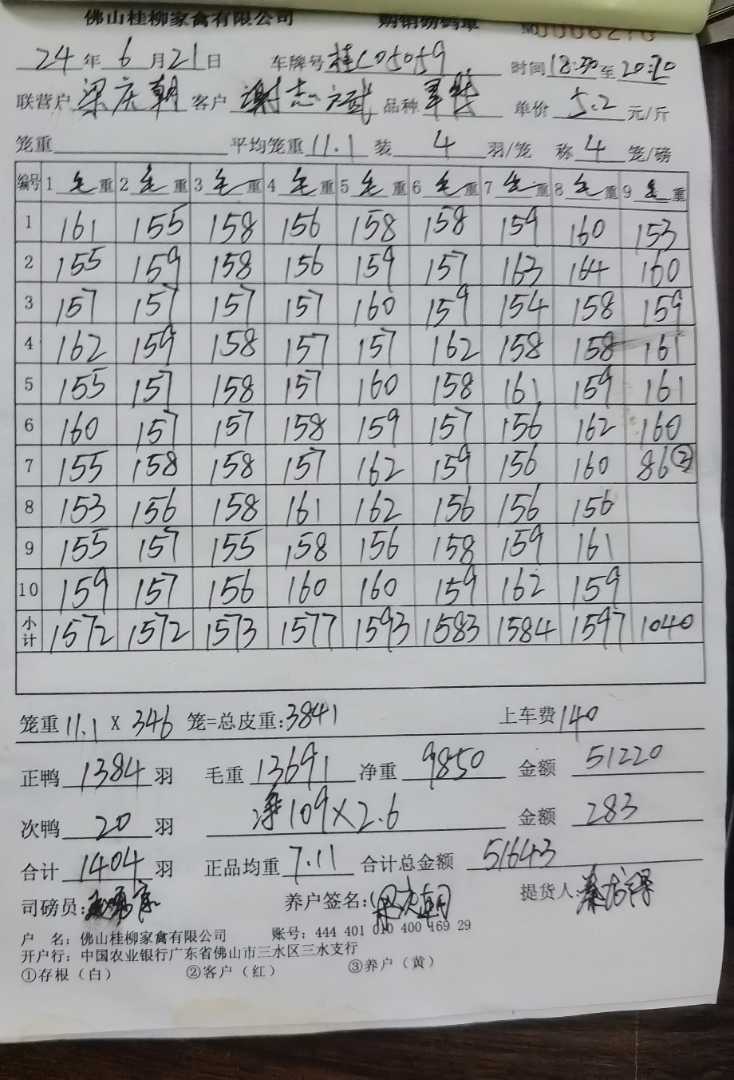 佛山桂柳家禽有限公司 购销磅码单 № 0006210
24 年 6 月 21 日 车牌号 桂C05059 时间 18:30 至 20:20
联营户 梁庆朝 客户 谢志斌 品种 单价 5.2 元/斤
笼重 平均笼重 11.1 装 4 羽/笼 称 4 笼/磅
编号 1 毛重 2 毛重 3 毛重 4 毛重 5 毛重 6 毛重 7 毛重 8 毛重 9 毛重
1 161 155 158 156 158 158 159 160 153
2 155 159 158 156 159 157 163 164 160
3 157 157 157 157 160 159 154 158 159
4 162 159 158 157 157 162 158 158 161
5 155 157 158 157 160 158 161 159 161
6 160 157 157 158 159 157 156 162 160
7 155 158 158 157 162 159 156 160 86②
8 153 156 158 161 162 156 156 156
9 155 157 155 158 156 158 159 161
10 159 157 156 160 160 159 162 159
小计 1572 1572 1573 1577 1593 1583 1584 1597 1040
笼重 11.1 X 346 笼=总皮重:3841 上车费 140
正鸭 1384 羽 毛重 13691 净重 9850 金额 51220
次鸭 20 羽 净109×2.6 金额 283
合计 1404 羽 正品均重 7.11 合计总金额 51643
司磅员: 养户签名: 梁庆朝 提货人:
户 名: 佛山桂柳家禽有限公司 账号: 444 401 010 400 169 29
开户行: 中国农业银行广东省佛山市三水区三水支行
①存根(白) ②客户(红) ③养户(黄)